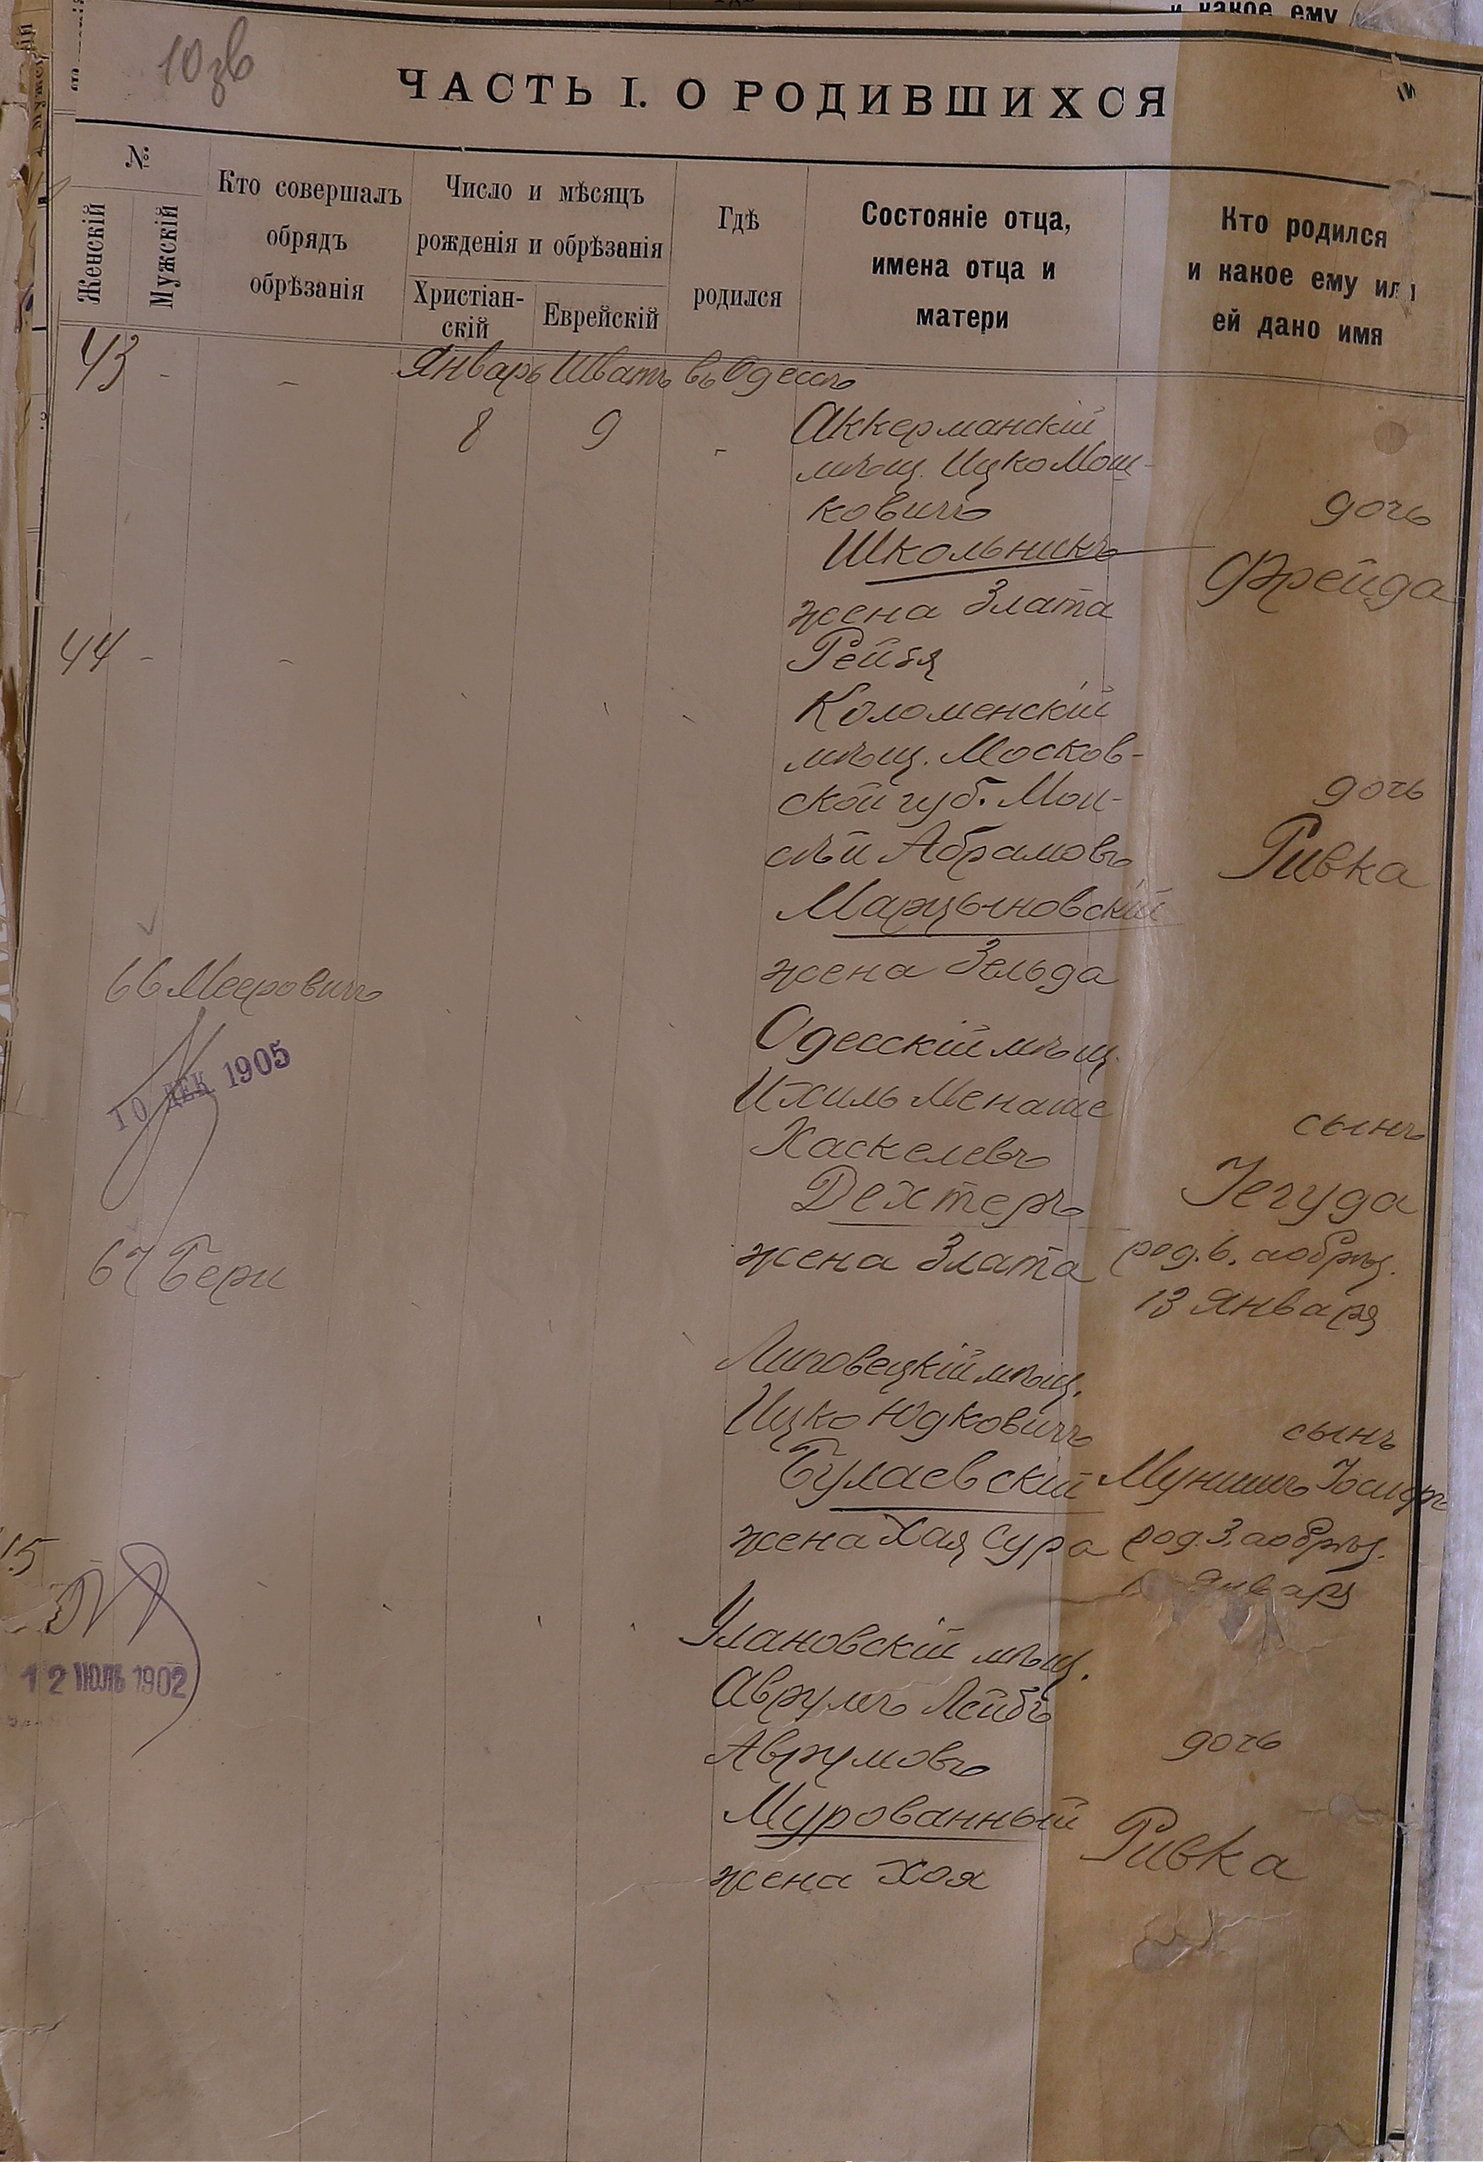 и какое ему
10 зв
ЧАСТЬ I. О РОДИВШИХСЯ
№
Женскій
Мужскій
Кто совершалъ
обрядъ
обрѣзанія
Число и мѣсяцъ
рожденія и обрѣзанія
Христіан-
скій
Еврейскій
Гдѣ
родился
Состояніе отца,
имена отца и
матери
Кто родился
и какое ему или
ей дано имя
43 - - Январь Шватъ въ Одессѣ
8 9 -
Аккерманскій
мѣщ. Ицко Мош-
ковичъ
Школьникъ
жена Злата
Рейзя
дочь
Фрейда
44 - -
Коломенскій
мѣщ. Москов-
ской губ. Мои-
сѣй Абрамовъ
Марцыновскій
жена Зельда
дочь
Ривка
66 Мееровичъ
10 ДЕК 1905
Одесскій мѣщ.
Ихиль Менаше
Хаскелевъ
Дехтеръ
жена Злата
сынъ
Іегуда
род. 6. а обрѣз.
13 Января
67 Бери
Липовецкій мѣщ.
Ицко Юдковичъ
Булаевскій
жена Хая Сура
сынъ
Мунишъ Іосифъ
род. 3. а обрѣз.
Января
45
12 ІЮЛЬ 1902
Улановскій мѣщ.
Аврумъ Лейбъ
Аврумовъ
Мурованный
жена Хая
дочь
Ривка